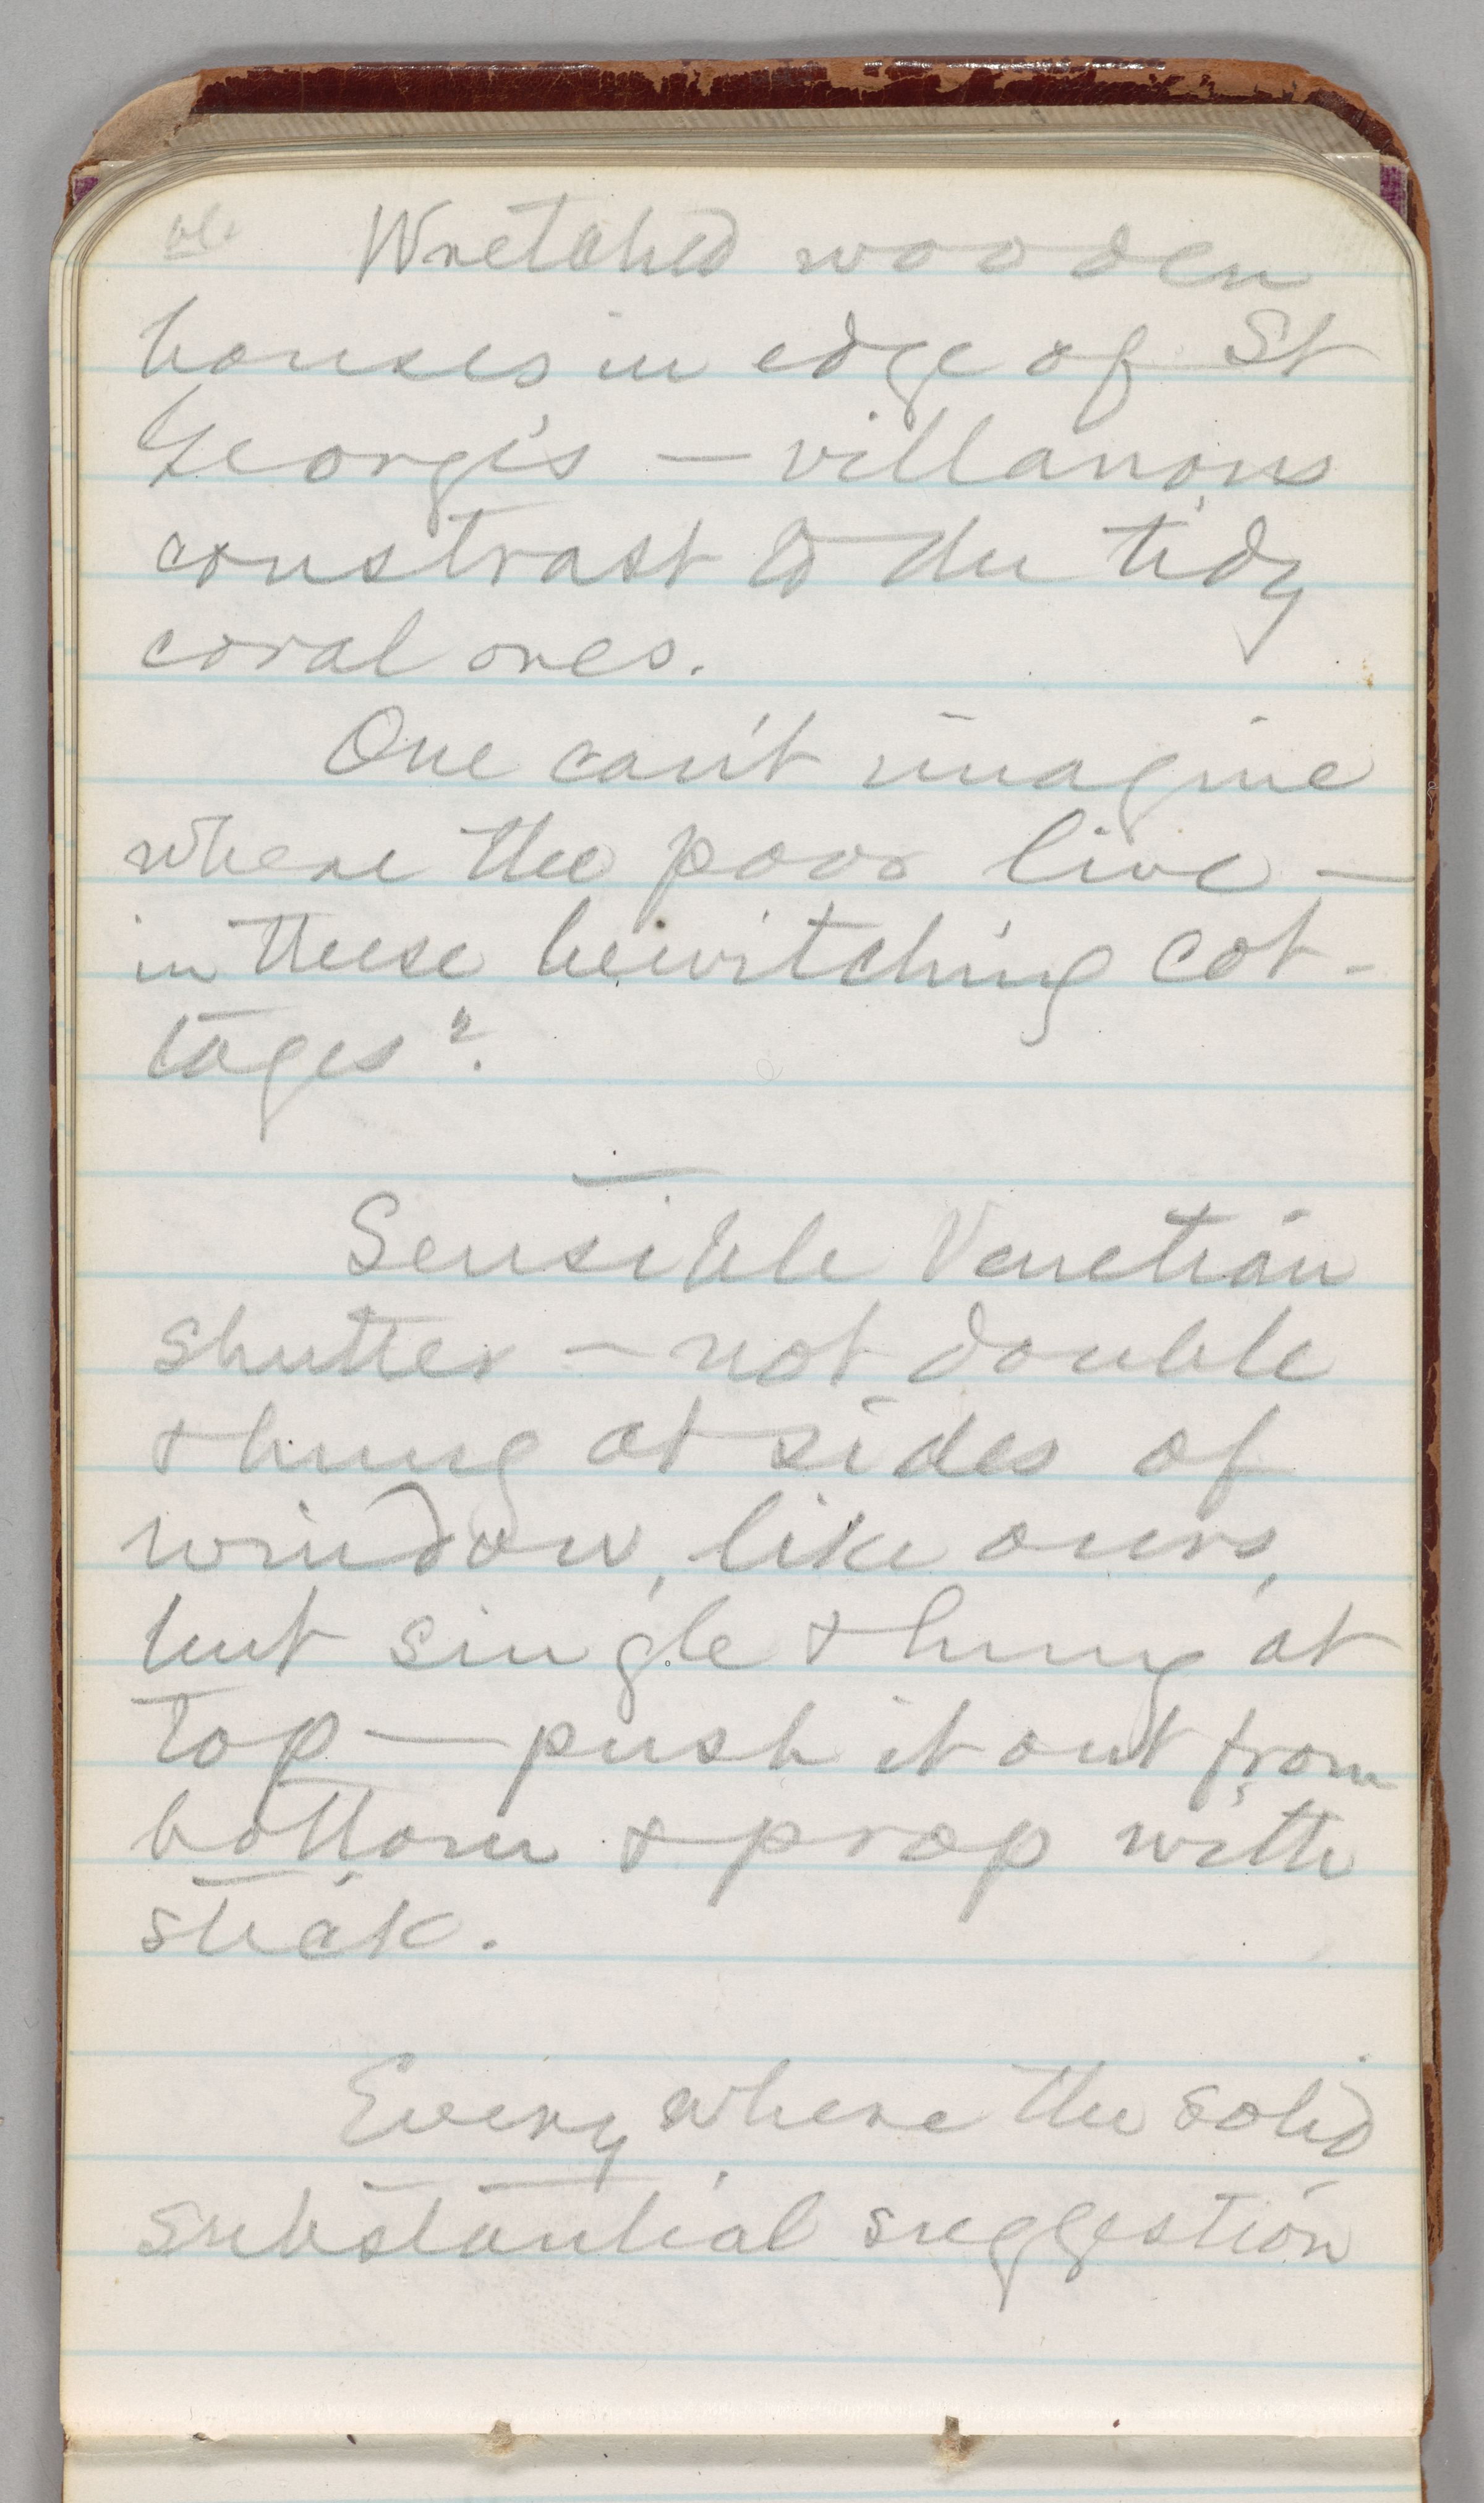 Wretched wooden
houses in edge of St
George's — villanous
constrast to the tidy
coral ones.
One can't imagine
where the poor live —
in these bewitching cot-
tages?
Sensible Venetian
shutter — not double
& hung at sides of
window, like ours,
but single & hung at
top — push it out from
bottom & prop with
stick.
Every where the solid
substantial suggestion